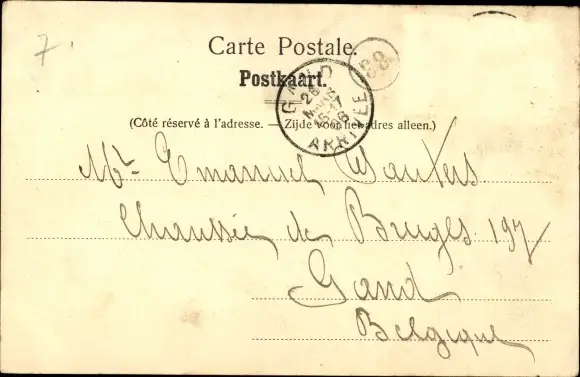 7.
Carte Postale.
Postkaart.
88
GAND
26
15-17
ARRIVÉE
(Côté réservé à l'adresse. — Zijde voor het adres alleen.)
Mr Emanuel Wauters
Chaussée de Bruges 197
Gand
Belgique